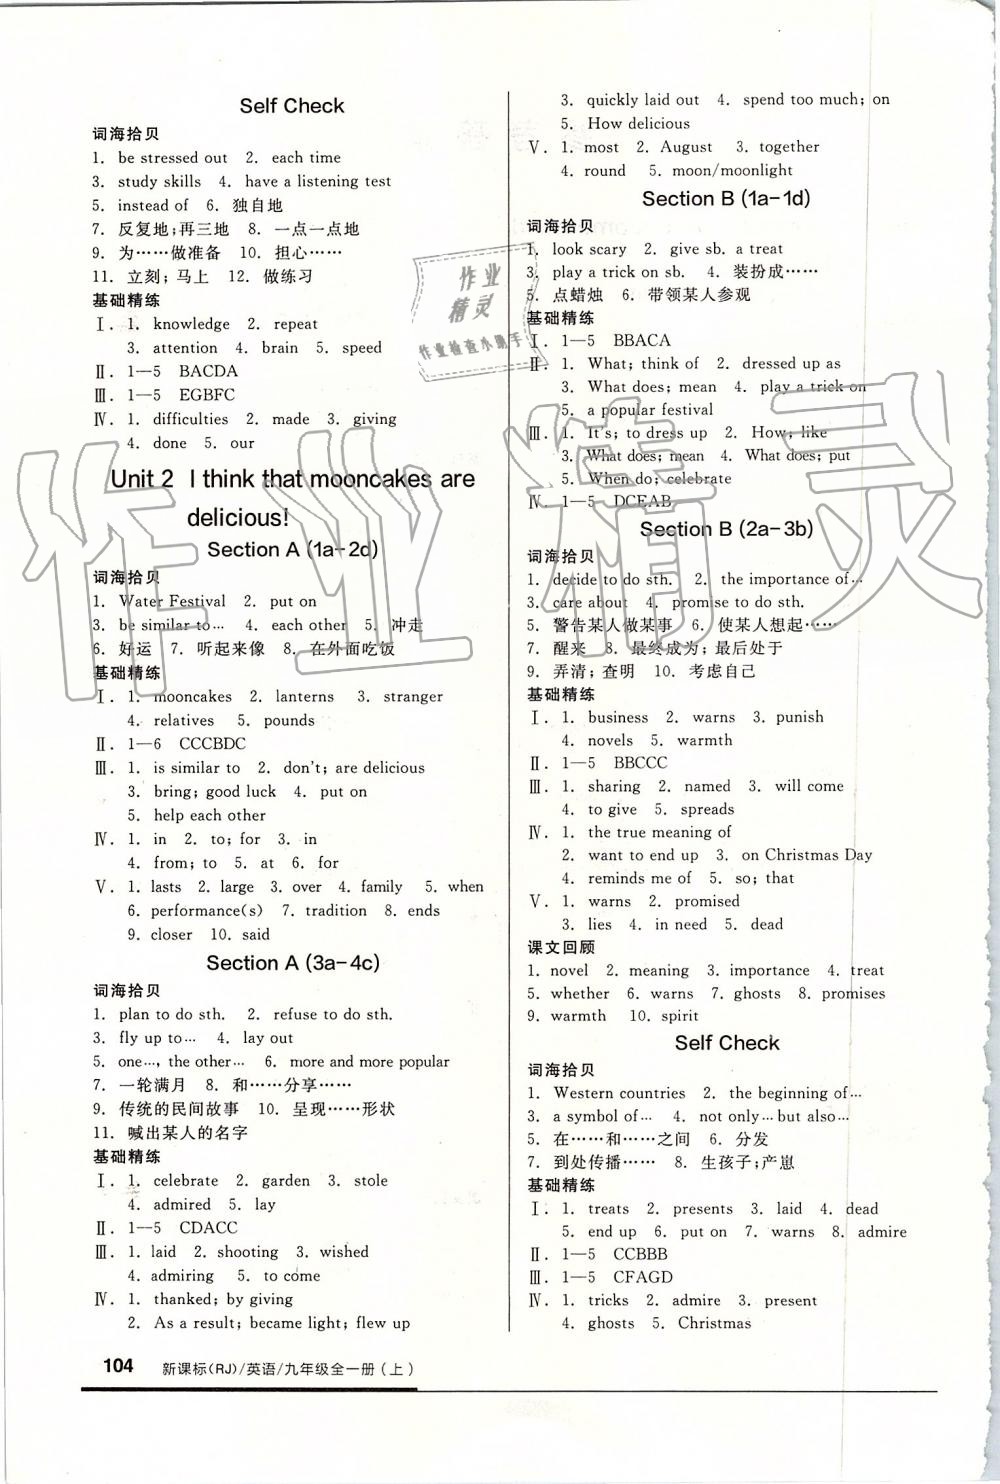 Self Check
词海拾贝
1. be stressed out 2. each time
3. study skills 4. have a listening test
5. instead of 6. 独自地
7. 反复地;再三地 8. 一点一点地
9. 为……做准备 10. 担心……
11. 立刻;马上 12. 做练习
基础精练
Ⅰ. 1. knowledge 2. repeat
3. attention 4. brain 5. speed
Ⅱ. 1—5 BACDA
Ⅲ. 1—5 EGBFC
Ⅳ. 1. difficulties 2. made 3. giving
4. done 5. our
Unit 2 I think that mooncakes are
delicious!
Section A (1a-2d)
词海拾贝
1. Water Festival 2. put on
3. be similar to… 4. each other 5. 冲走
6. 好运 7. 听起来像 8. 在外面吃饭
基础精练
Ⅰ. 1. mooncakes 2. lanterns 3. stranger
4. relatives 5. pounds
Ⅱ. 1—6 CCCBDC
Ⅲ. 1. is similar to 2. don't; are delicious
3. bring; good luck 4. put on
5. help each other
Ⅳ. 1. in 2. to; for 3. in
4. from; to 5. at 6. for
Ⅴ. 1. lasts 2. large 3. over 4. family 5. when
6. performance(s) 7. tradition 8. ends
9. closer 10. said
Section A (3a-4c)
词海拾贝
1. plan to do sth. 2. refuse to do sth.
3. fly up to… 4. lay out
5. one…, the other… 6. more and more popular
7. 一轮满月 8. 和……分享……
9. 传统的民间故事 10. 呈现……形状
11. 喊出某人的名字
基础精练
Ⅰ. 1. celebrate 2. garden 3. stole
4. admired 5. lay
Ⅱ. 1—5 CDACC
Ⅲ. 1. laid 2. shooting 3. wished
4. admiring 5. to come
Ⅳ. 1. thanked; by giving
2. As a result; became light; flew up
3. quickly laid out 4. spend too much; on
5. How delicious
Ⅴ. 1. most 2. August 3. together
4. round 5. moon/moonlight
Section B (1a-1d)
词海拾贝
1. look scary 2. give sb. a treat
3. play a trick on sb. 4. 装扮成……
5. 点蜡烛 6. 带领某人参观
基础精练
Ⅰ. 1—5 BBACA
Ⅱ. 1. What; think of 2. dressed up as
3. What does; mean 4. play a trick on
5. a popular festival
Ⅲ. 1. It's; to dress up 2. How; like
3. What does; mean 4. What does; put
5. When do; celebrate
Ⅳ. 1—5 DCEAB
Section B (2a-3b)
词海拾贝
1. decide to do sth. 2. the importance of…
3. care about 4. promise to do sth.
5. 警告某人做某事 6. 使某人想起……
7. 醒来 8. 最终成为;最后处于
9. 弄清;查明 10. 考虑自己
基础精练
Ⅰ. 1. business 2. warns 3. punish
4. novels 5. warmth
Ⅱ. 1—5 BBCCC
Ⅲ. 1. sharing 2. named 3. will come
4. to give 5. spreads
Ⅳ. 1. the true meaning of
2. want to end up 3. on Christmas Day
4. reminds me of 5. so; that
Ⅴ. 1. warns 2. promised
3. lies 4. in need 5. dead
课文回顾
1. novel 2. meaning 3. importance 4. treat
5. whether 6. warns 7. ghosts 8. promises
9. warmth 10. spirit
Self Check
词海拾贝
1. Western countries 2. the beginning of…
3. a symbol of… 4. not only…but also…
5. 在……和……之间 6. 分发
7. 到处传播…… 8. 生孩子;产崽
基础精练
Ⅰ. 1. treats 2. presents 3. laid 4. dead
5. end up 6. put on 7. warns 8. admire
Ⅱ. 1—5 CCBBB
Ⅲ. 1—5 CFAGD
Ⅳ. 1. tricks 2. admire 3. present
4. ghosts 5. Christmas
104 新课标(RJ)/英语/九年级全一册(上)
作业
精灵
作业检查小助手
作业精灵